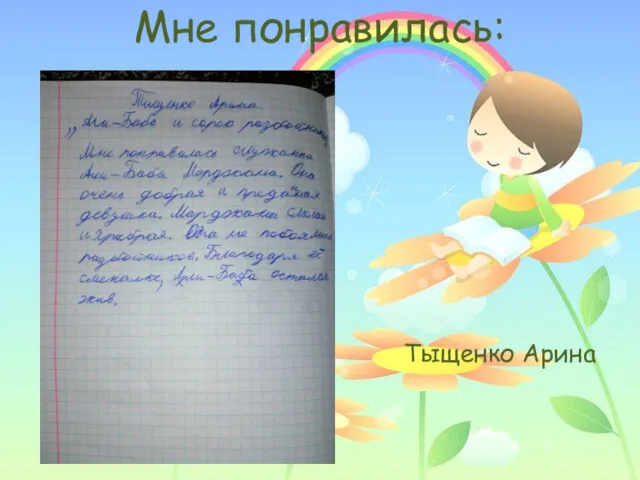 Мне понравилась:
Тищенко Арина.
„Али-Баба и сорок разбойников
Мне понравилась служанка
Али-Бабы Марджана. Она
очень добрая и преданая
девушка. Марджана смелая
и храбрая. Она не побоялась
разбойников. Благодаря её
смекалке, Али-Баба остался
жив.
Тыщенко Арина